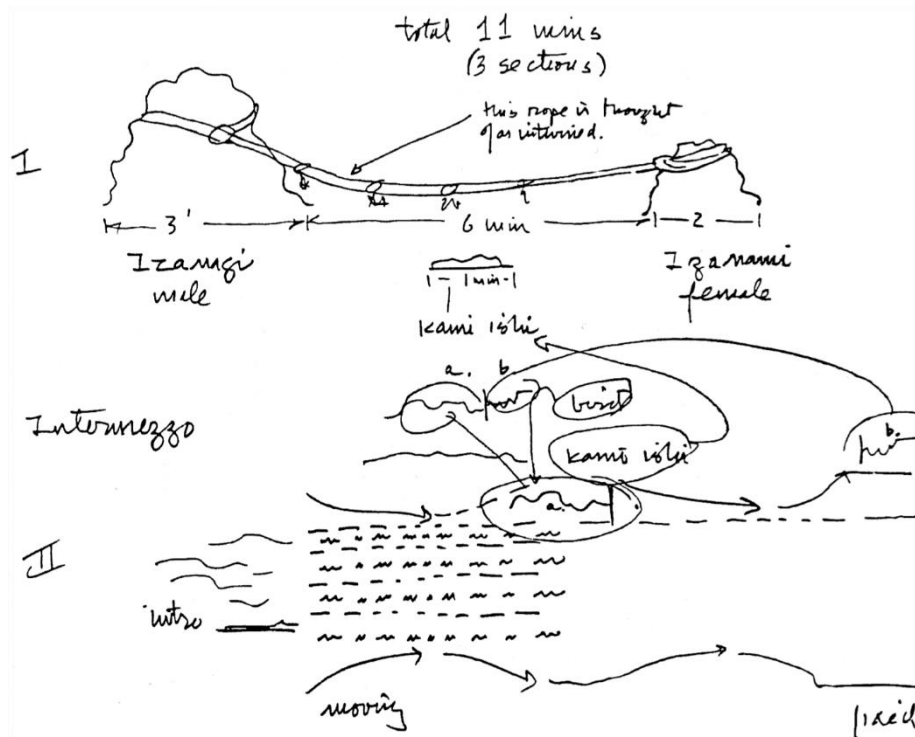 total 11 mins
(3 sections)
this rope is thought
of as intwined.
I
3'
6 min
2
Izanagi
male
1 min
Izanami
female
kami ishi
a.
b.
Intermezzo
kami ishi
b.
a.
II
intro
moving
fixed